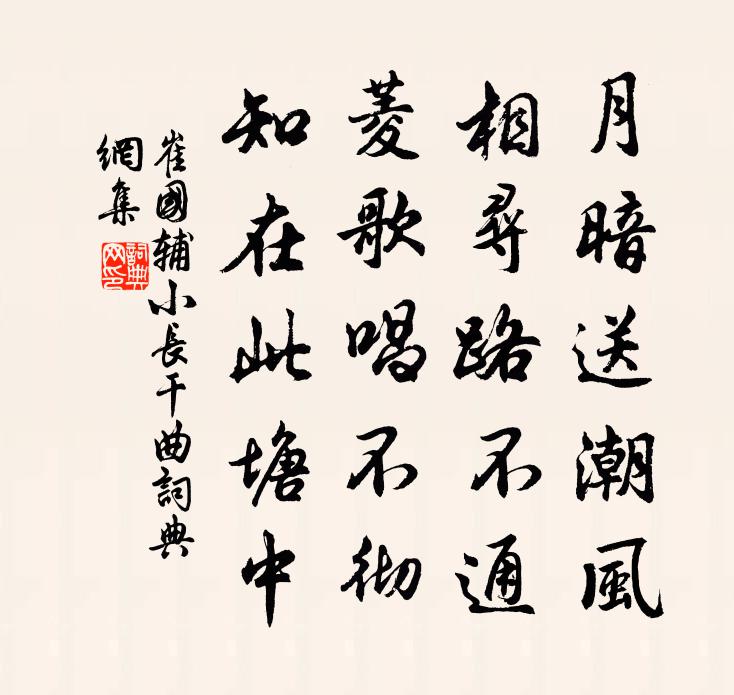 月暗送潮風
相尋路不通
菱歌唱不彻
知在此塘中
崔國輔小長干曲詞典
網集
詞典網印